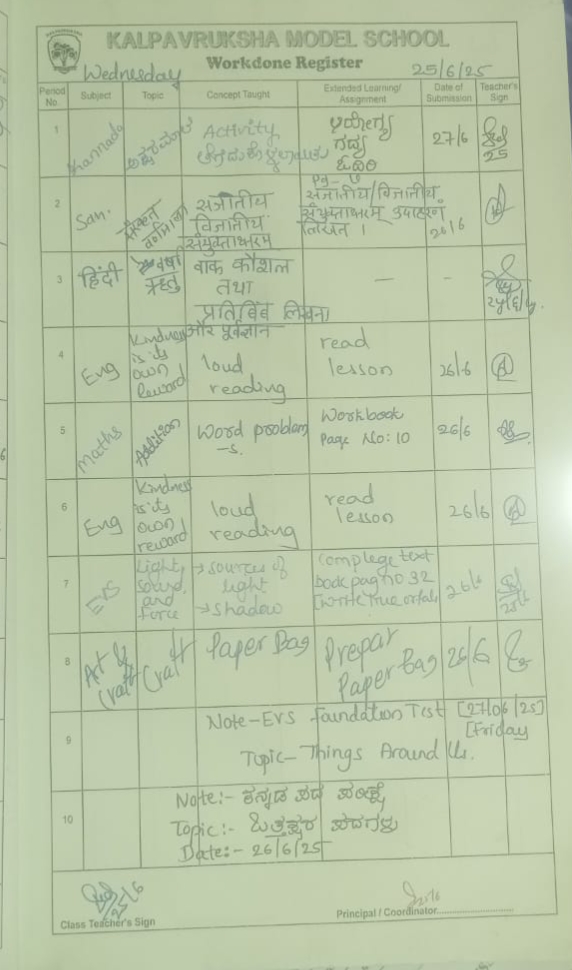 KALPAVRUKSHA MODEL SCHOOL
Workdone Register
Wednesday 25/6/25
Period No. Subject Topic Concept Taught Extended Learning/ Assignment Date of Submission Teacher's Sign
1 Kannada Activity 27/6
25
2 San. सजातीय
विजातीय
संयुक्ताक्षरम्
सजातीय/विजातीय
संयुक्ताक्षरम् उदाहरणं
लिखत । 26/6
3 हिंदी वर्षा ऋतु वाक कौशल
तथा
प्रतिबिंब लिखना
— -
4 Eng Kindness
is its
own
Reward
loud
reading
read
lesson
26/6
5 Maths Addition Word problem
-s.
Workbook
Page No: 10
26/6
6 Eng Kindness
is its
own
reward
loud
reading
read
lesson
26/6
7 EVS Light,
sound,
and
Force
→ sources of
light
→ shadow
text
book pag no 32
26/6
8 Art &
Craft
Craft Paper Bag Prepar
Paper Bag
26/6
9 Note-EVS Foundation Test [27/06/25]
[Friday
Topic- Things Around Us.
10 Note:- ಕನ್ನಡ ಪದ
Topic:- ಒತ್ತಕ್ಷರ ಪದಗಳು
Date:- 26/6/25
Class Teacher's Sign
Principal / Coordinator